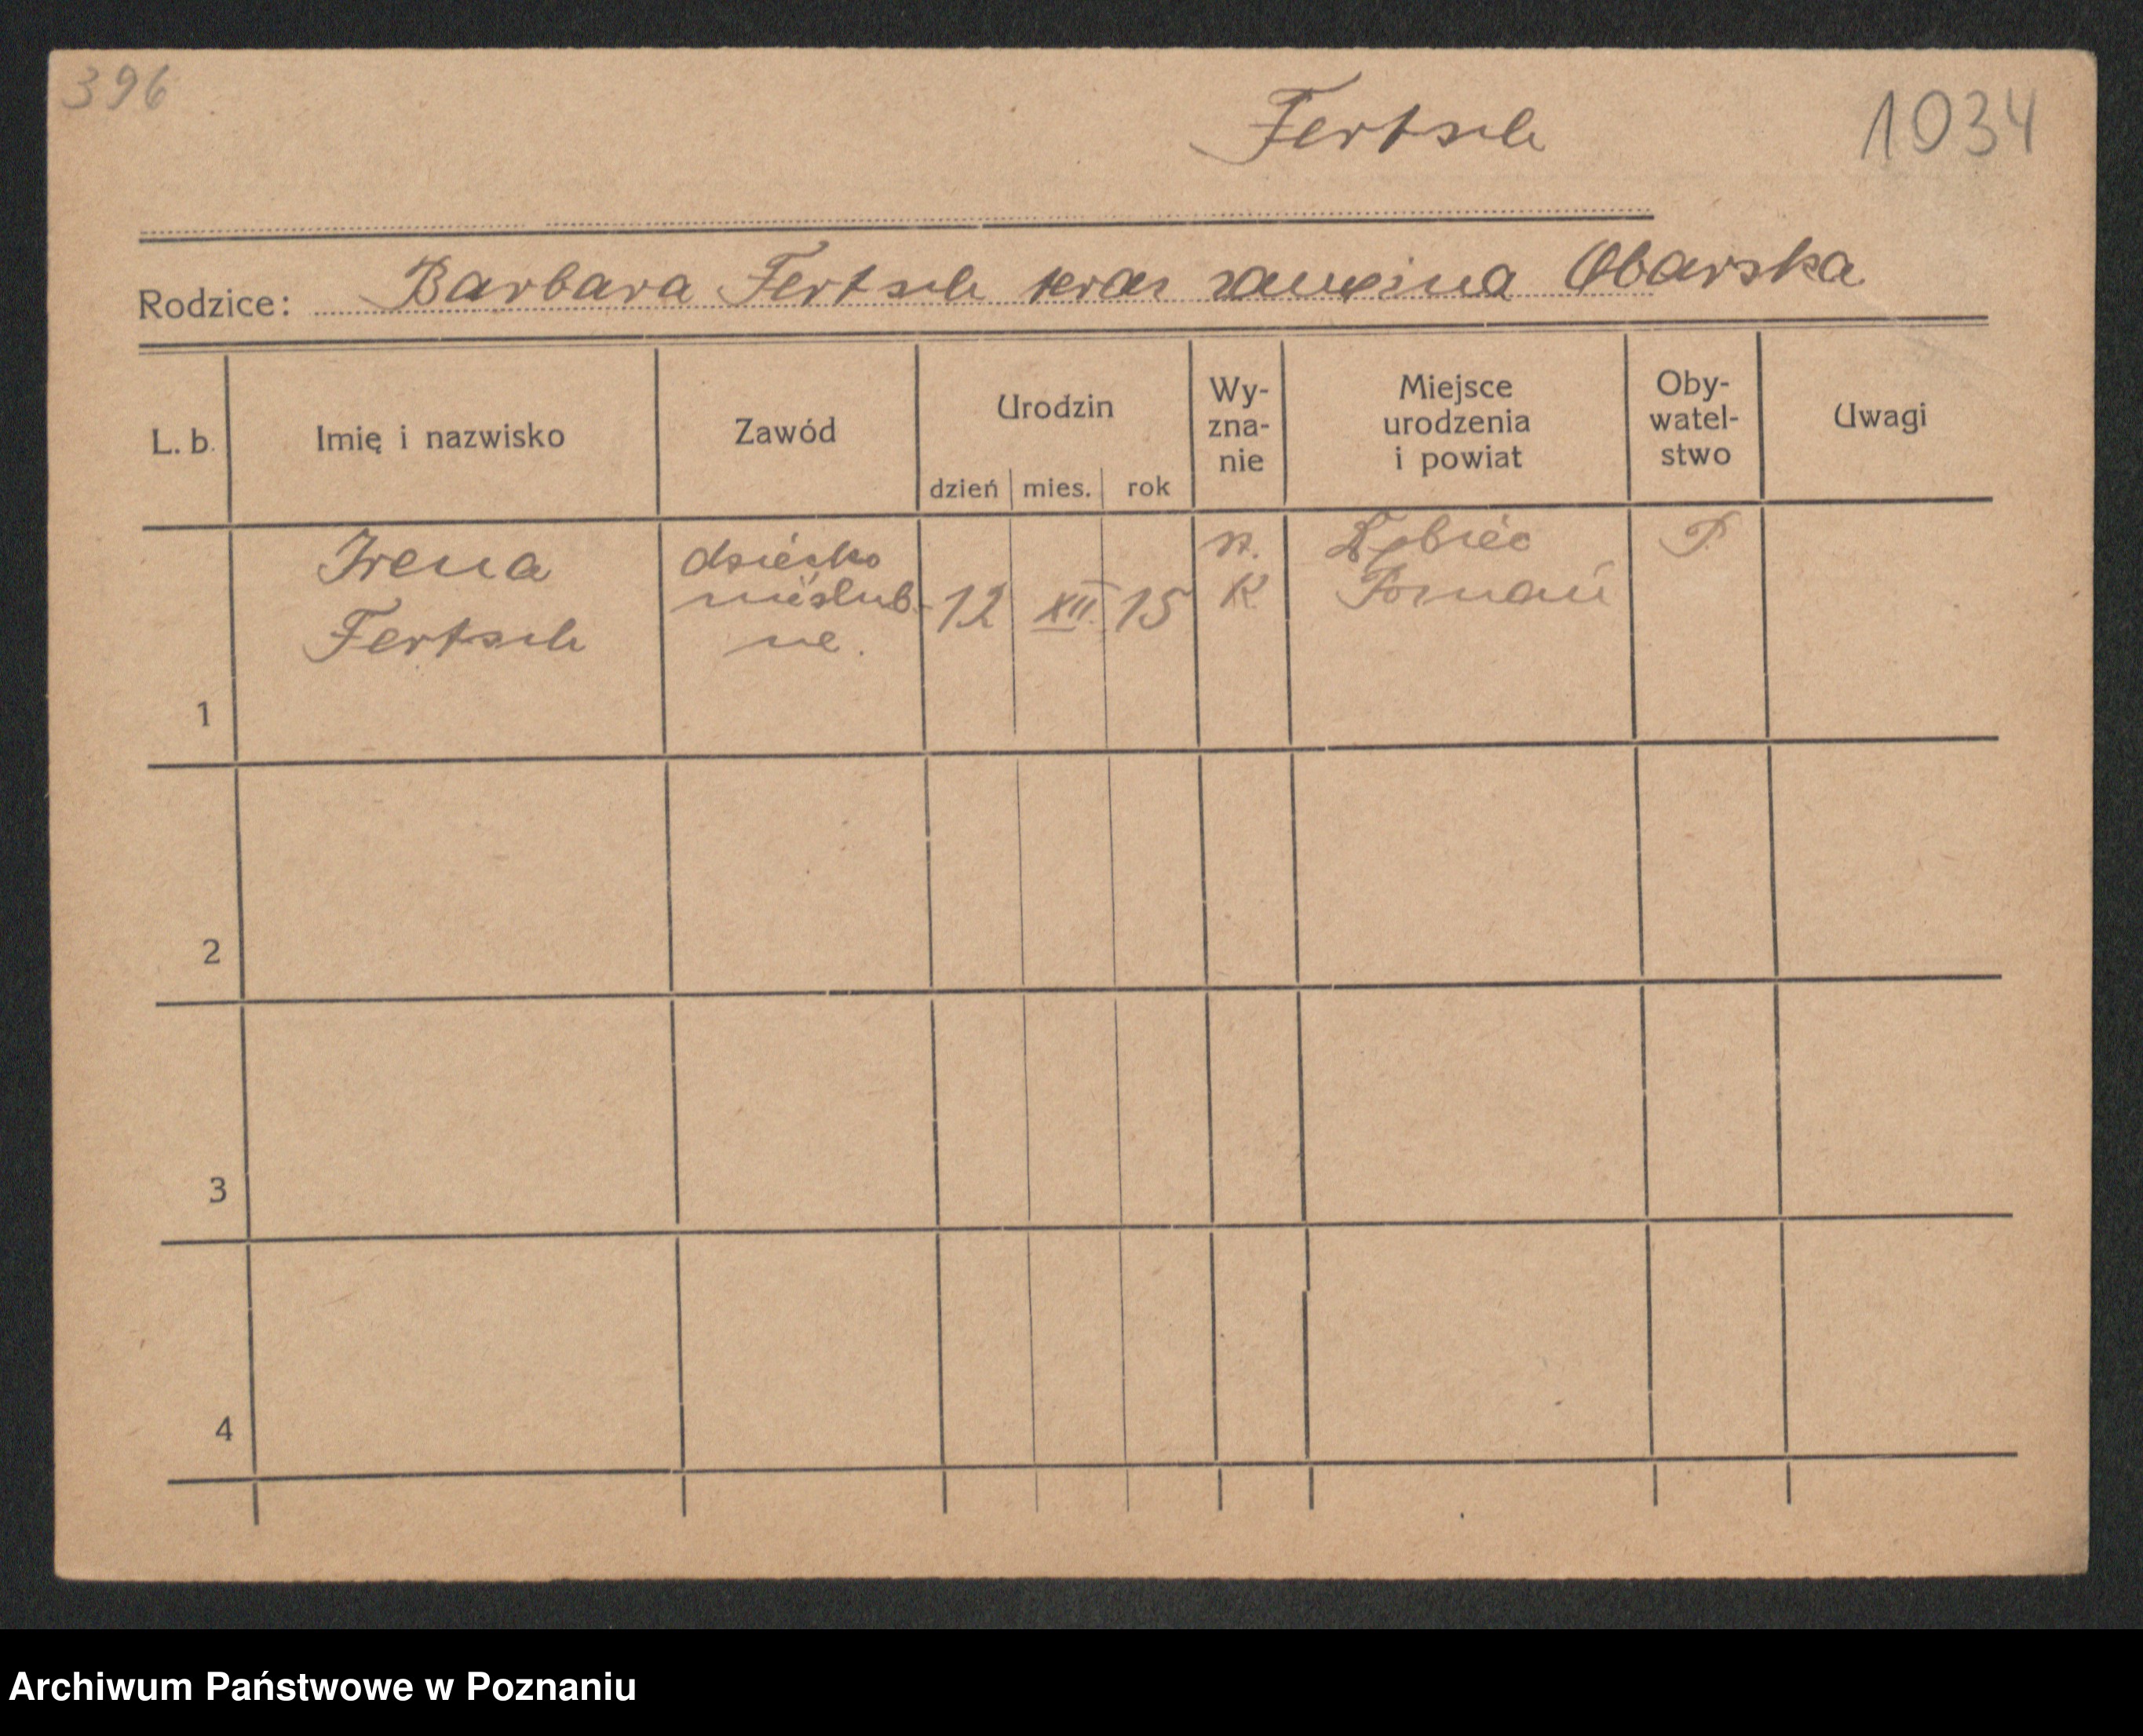 396
Fertsch
1034
Rodzice: Barbara Fertsch teraz zamężna Obarska
L. b.
Imię i nazwisko
Zawód
Urodzin
dzień mies. rok
Wy-
zna-
nie
Miejsce
urodzenia
i powiat
Oby-
watel-
stwo
Uwagi
1
Irena
Fertsch
dziecko
nieślub-
ne.
12 XII. 15
rz.
K.
Dębiec
Poznań
P.
2
3
4
Archiwum Państwowe w Poznaniu